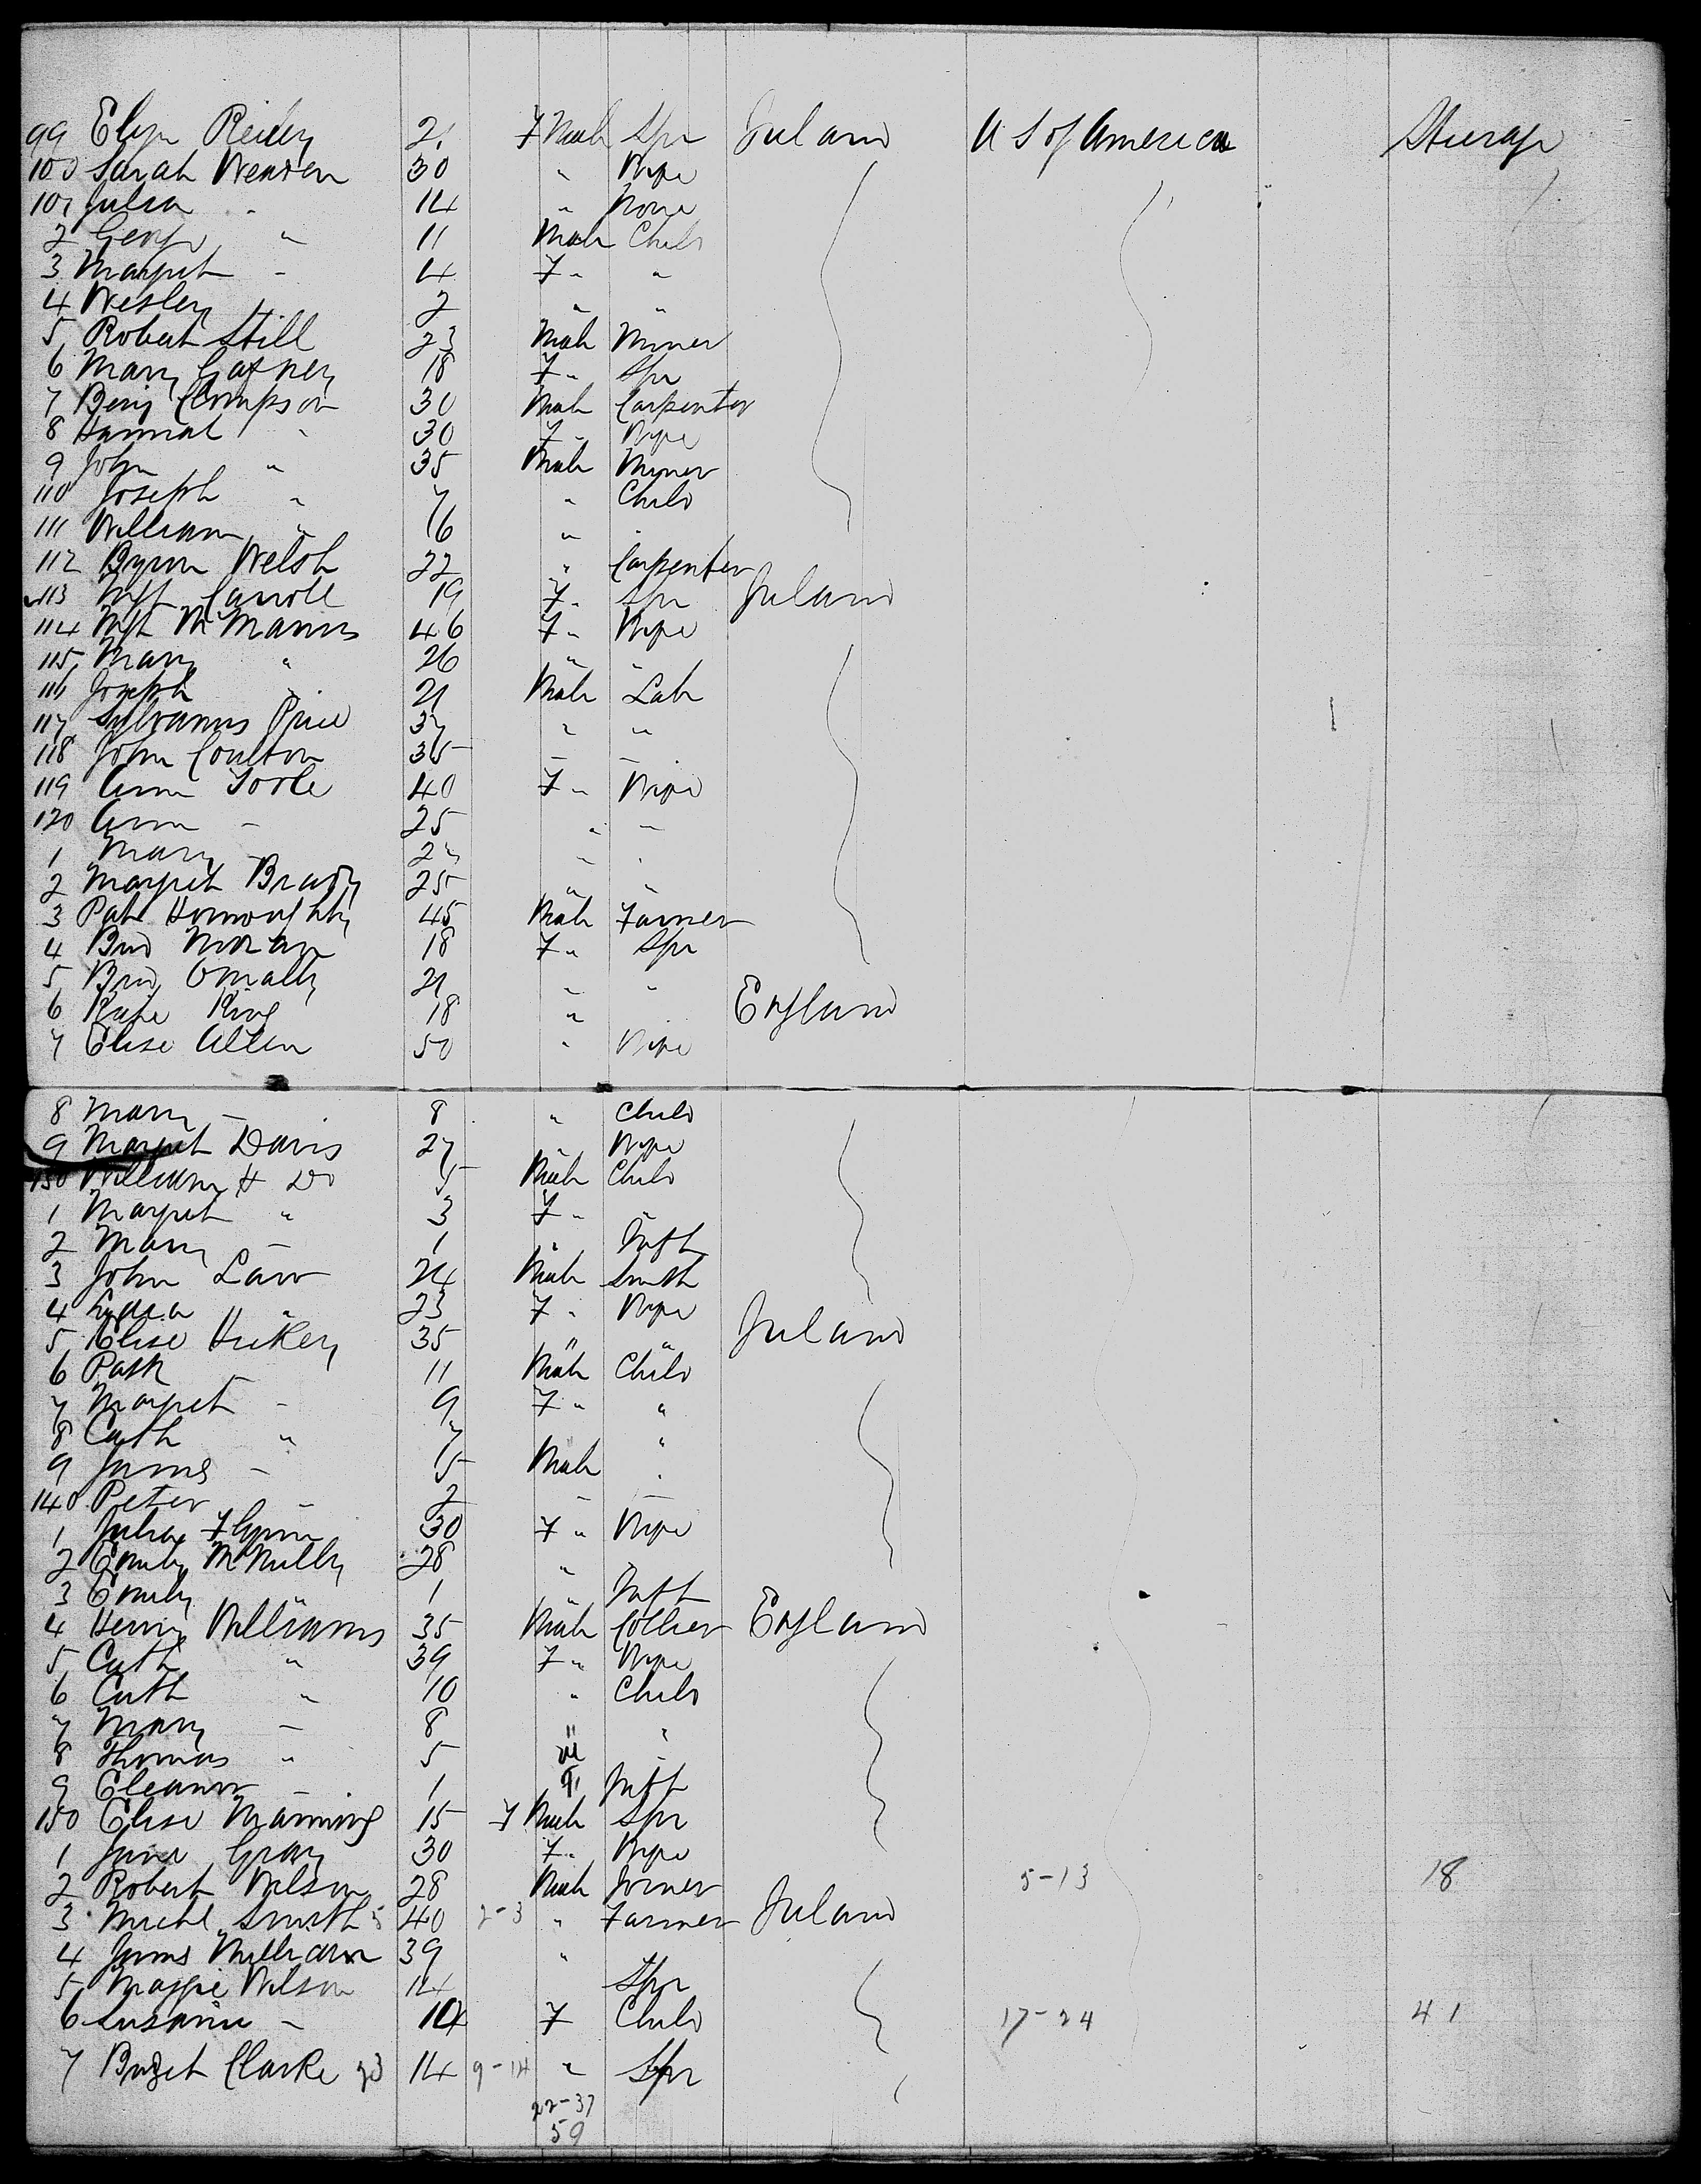 99 Eliza Reiley 21 F Male Spr Ireland U S of America Steerage
100 Sarah Weaven 30 " Wife
101 Julia " 14 " None
2 George " 11 Male Child
3 Margret " 4 F " "
4 Wesley 2 " "
5 Robert Still 23 Male Miner
6 Mary Gafney 18 F " Spr
7 Benj Clompson 30 Male Carpenter
8 Hannah " 30 F " Wife
9 John " 35 Male Miner
110 Joseph " 7 " Child
111 William " 6 " "
112 Byron Welsh 22 " Carpenter
113 Carroll 19 F " Spr Ireland
114 McManus 46 F " Wife
115 Mary " 26 " "
116 Joseph " 21 Male Lab
117 Sylvanus Price 37 " "
118 John Coulton 35 " "
119 Ann Toole 40 F " Wife
120 Ann " 25 " "
1 Mary " " "
2 Margret Brady 25 " "
3 Pat 45 Male Farmer
4 Brid Moran 18 F " Spr
5 Brid Omally 21 " "
6 Kate King 18 " " England
7 Elise Allen 50 " Wife
8 Mary " 8 " Child
9 Margret Davis 27 " Wife
130 William H Do 5 Male Child
1 Margret " 3 F " "
2 Mary " 1 " Inft
3 John Law 24 Male Smith
4 Lydia " 23 F " Wife
5 Elise Hickey 35 " " Ireland
6 Patk 11 Male Child
7 Margret " 9 F " "
8 Cath " 7 " "
9 James " 5 Male "
140 Peter " 2 " "
1 Julia Flynn 30 F " Wife
2 Emily McNully 28 "
3 Emily " 1 Inft
4 Henry Williams 35 Male Collier England
5 Cath " 39 F " Wife
6 Cath " 10 " Child
7 Mary " 8 " "
8 Thomas " 5 M "
9 Eleanor " 1 F Inft
150 Elise Manning 15 F Male Spr
1 Jane Gray 30 F " Wife
2 Robert Wilson 28 Male Joiner 5-13 18
3 Michl Smith 5 40 2-3 " Farmer Ireland
4 James Millican 39 "
5 Maggie Wilson 14 Spr
6 Susanna " 10 F Child 17-24 41
7 Bridget Clarke 23 14 9-14 " Spr
22-37
59